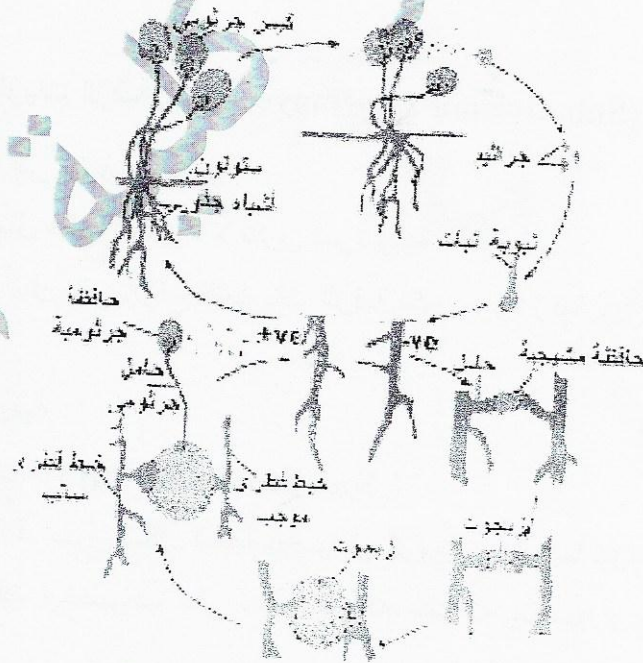 كيس جرثومي
ستولون
أشباه جذور
جراثيم
نبوبة نبات
حافظة
جرثومية
حامل
جرثومي
+ve
-ve
حامل
حافظة مشيجية
سالب
خيط فطري
موجب
زيجوت
زيجوت